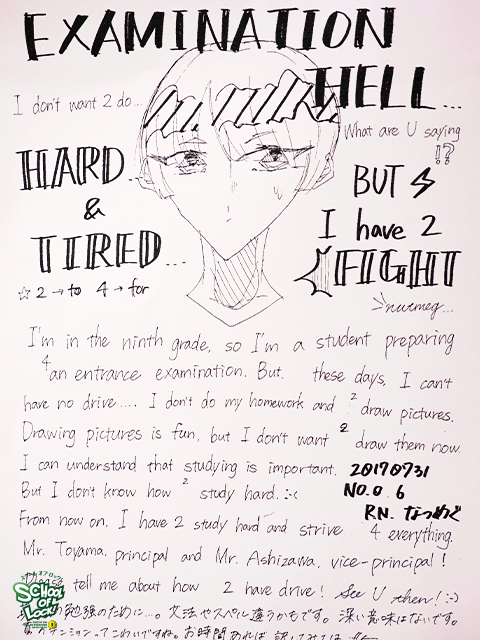 EXAMINATION
HELL...
I don't want 2 do...
What are U saying
!?
HARD...
&
TIRED...
BUT
I have 2
FIGHT
☆ 2→to 4→for
nutmeg...
I'm in the ninth grade, so I'm a student preparing
4 an entrance examination. But. these days, I can't
have no drive..... I don't do my homework and 2 draw pictures.
Drawing pictures is fun, but I don't want 2 draw them now.
I can understand that studying is important. 20170731
But I don't know how 2 study hard. :-< NO.0.6
From now on, I have 2 study hard and strive 4 everything. R.N. なつめぐ
Mr. Toyama, principal and Mr. Ashizawa, vice-principal!
Please tell me about how 2 have drive! See U then! :-)
SCHOOL OF LOCK!
勉強のために…。文法やスペル違うかもです。深い意味はないです。
テンションってこわいですね。お時間あれば